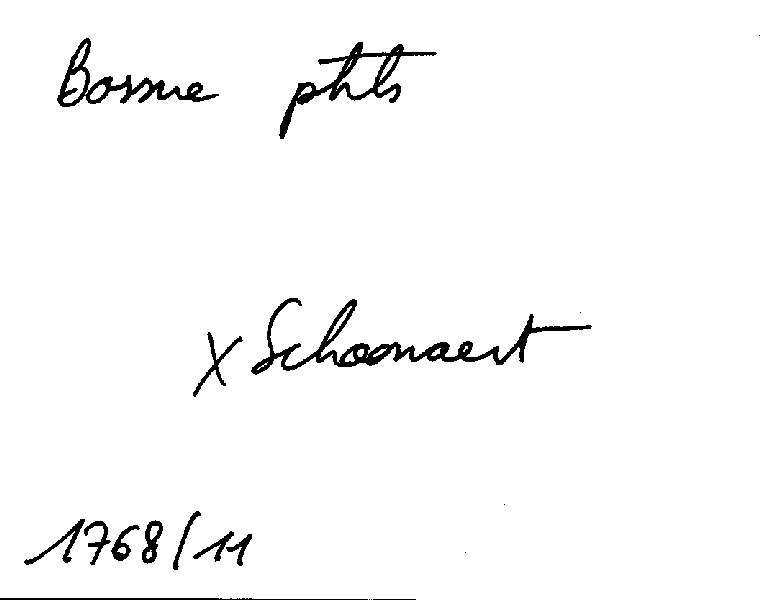 Bossue phts
x Schoonaert
1768/11